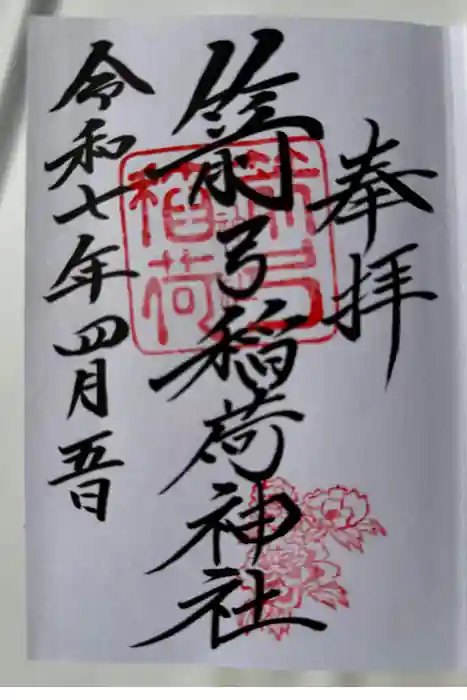 奉拝
箭弓稲荷神社
令和七年四月五日
箭弓
稲荷